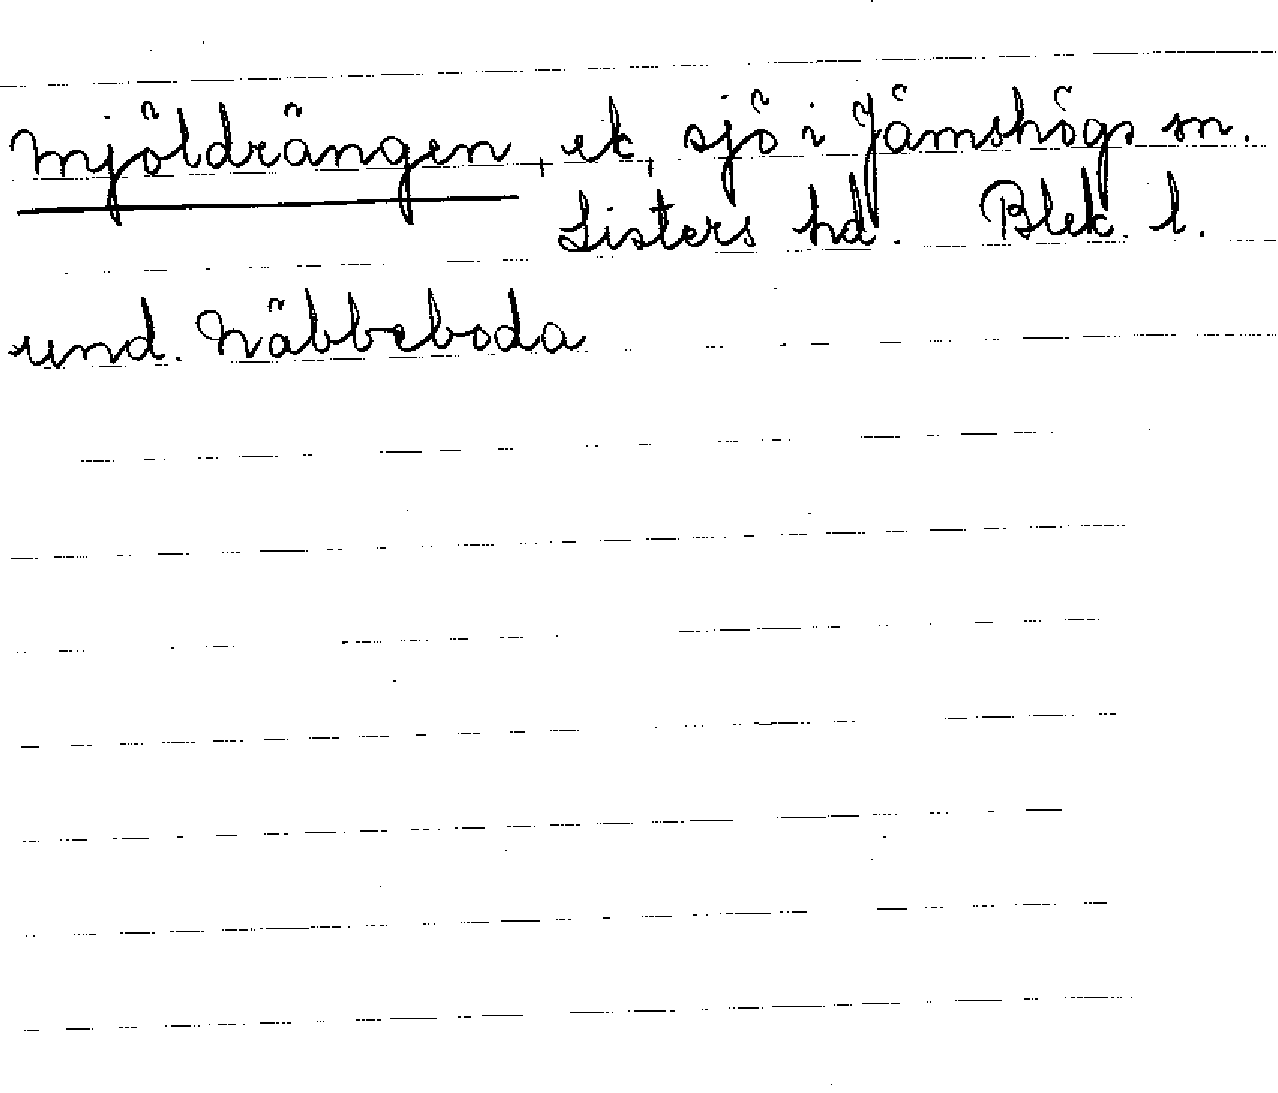 Mjöldrängen, ek, sjö i Jämshögs sn.
Listers hd. Blek. l.
und. Näbbeboda